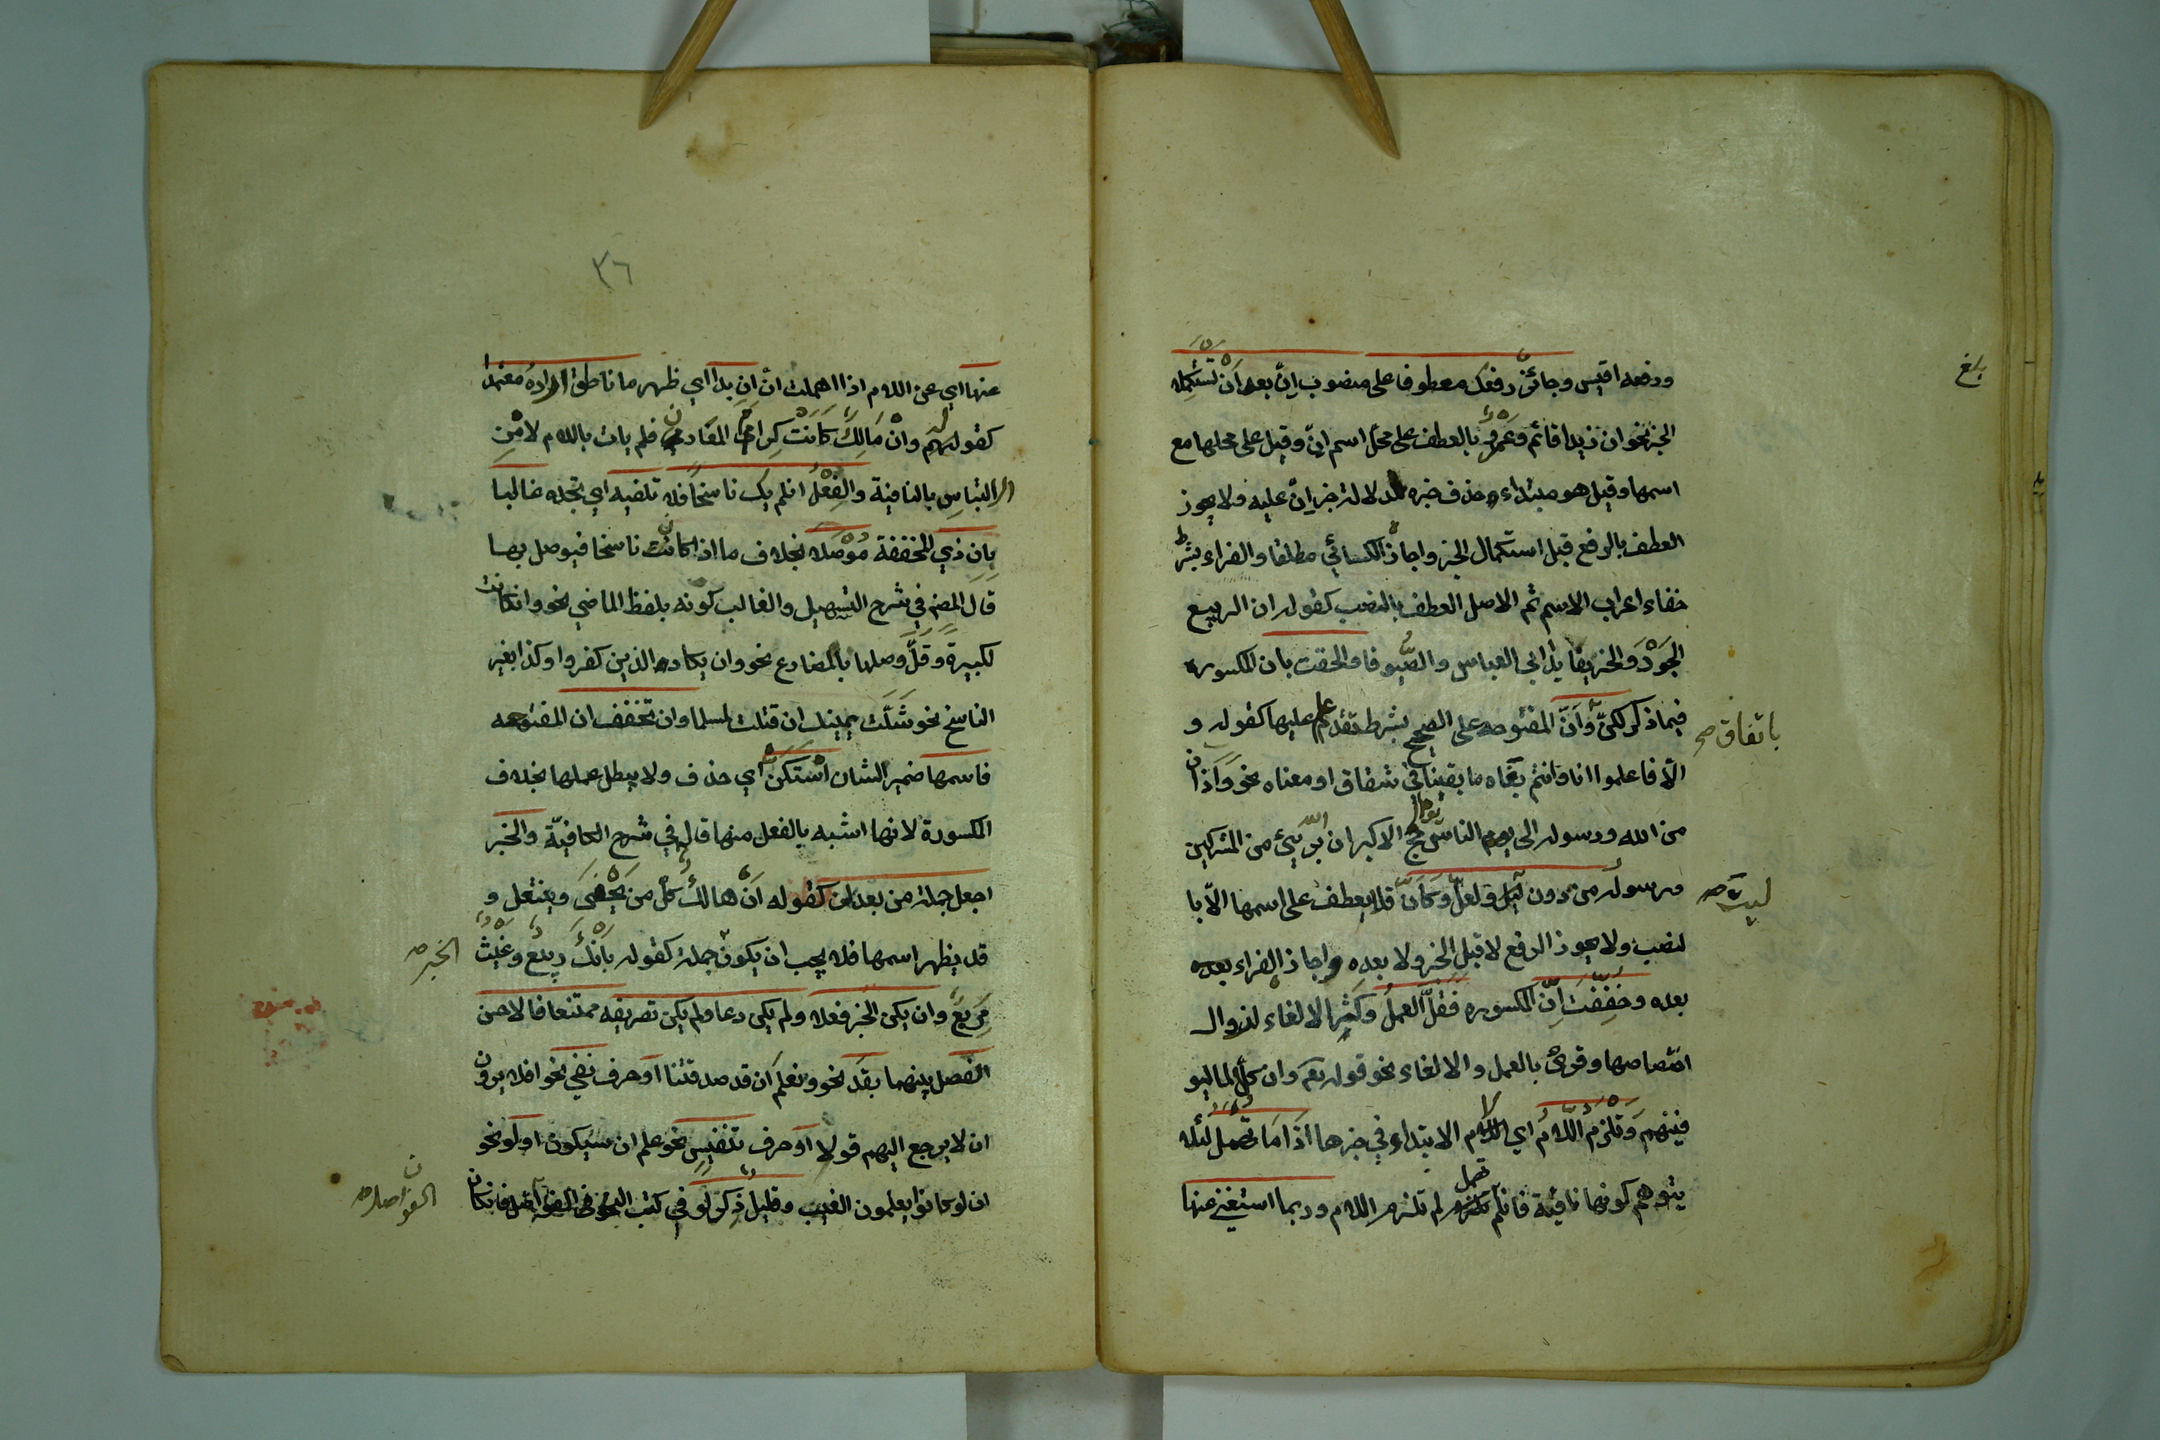 بلغ
ورفعه اقيس وجائز رفعك معطوفا على منصوب إنّ بعد أن تستكمله
الخبر نحو ان زيدا قائم وعمرو بالعطف على محل اسم انّ وقيل على محلها مع
اسمها وقيل هو مبتداء وحذف خبره لدلالة خبر انّ عليه ولا يجوز
العطف بالرفع قبل استكمال الخبر واجاز الكسائي مطلقا والفراء بشرط
خفاء اعراب الاسم ثم الاصل العطف بالنصب كقوله ان الربيع
الجَوْدَ والخريفا يدا ابي العباس والصُّيوفا والحقت بان المكسورة
باتفاق صح
فيما ذكر لكنّ وأنّ المفتوحه على الصحيح بشرط تقدم علم عليها كقوله و
الّا فاعلموا انا وانتم بغاه ما بقينا في شقاق او معناه نحو وأذان
من الله ورسوله الى الناس يوم الحج الاكبر ان الله بريئ من المشركين
ورسولُه من دون ليت ولعلّ وكأنّ فلا يعطف على اسمها الّا با
ليت صح
لنصب ولا يجوز الرفع لا قبل الخبر ولا بعده واجاز الفراء بعده
بعده وخُفِّفَت إنّ المكسوره فقلّ العملُ وكثر الالغاء لزوال
اختصاصها وقرئ بالعمل والالغاء نحو قوله تعَ وان كلّ لما ليو
فينهم وتلزَمُ اللّامُ اي لام الابتداء في خبرها اذا مَا تهمل لئلا
يتوهم كونها نافية فان لم تهمل لم تلزم اللام وربما استغني عنها
٣٦
عنها اي عن اللام اذا اهملت انّ ان بدا اي ظهر ما ناطق اراده معتمدا
كقوله وانْ مَالِكُ كَانَتْ كِرامَ المعَادن فلم يات باللام لامْنِ
الالتباسِ بالنافية والفِعْلُ ان لم يك ناسخًا فلا تلفيه اي تجده غالبا
بِإن ذي المخففة مُوصَلا بخلاف ما اذا كانت ناسخا فيوصل بها
قال المصنف في شرح التسهيل والغالب كونه بلفظ الماضي نحو وان كانت
لكبيرةً وقلّ وصلها بالمضارع نحو وان يكاد الذين كفروا وكذا بغير
الناسخ نحو شَلَّت يمينك ان قتلت لمسلما وان تخفف ان المفتوحه
فاسمها ضمير الشان استكنّ اي حذف ولا يبطل عملها بخلاف
المكسورة لانها اشبه بالفعل منها قاله في شرح الكافيّة والخبر
اجعل جملة من بعد ان كقوله أنْ هالكٌ كلّ من يَحْفَى وينتعل و
قد يظهر اسمها فلا يجب ان يكون جملة كقوله بأنْكَ ربيعٌ وغَيْثٌ
الخبر صح
مَرِيعٌ وان يكن الخبر فعلا ولم يكن دعا ولم يكن تصريفه ممتنعا فالاحسن
الفصل بينهما بقَد نحو ونعلمَ ان قد صدقتنا أو حرف نفي نحو افلا يرون
ان لا يرجع اليهم قولا أو حرف تنفيسٍ نحو علم ان سيكون او لو نحو
ان لو كانوا يعلمون الغيب وقليل ذكر لو في كتب النحو في الفواصل فان كان